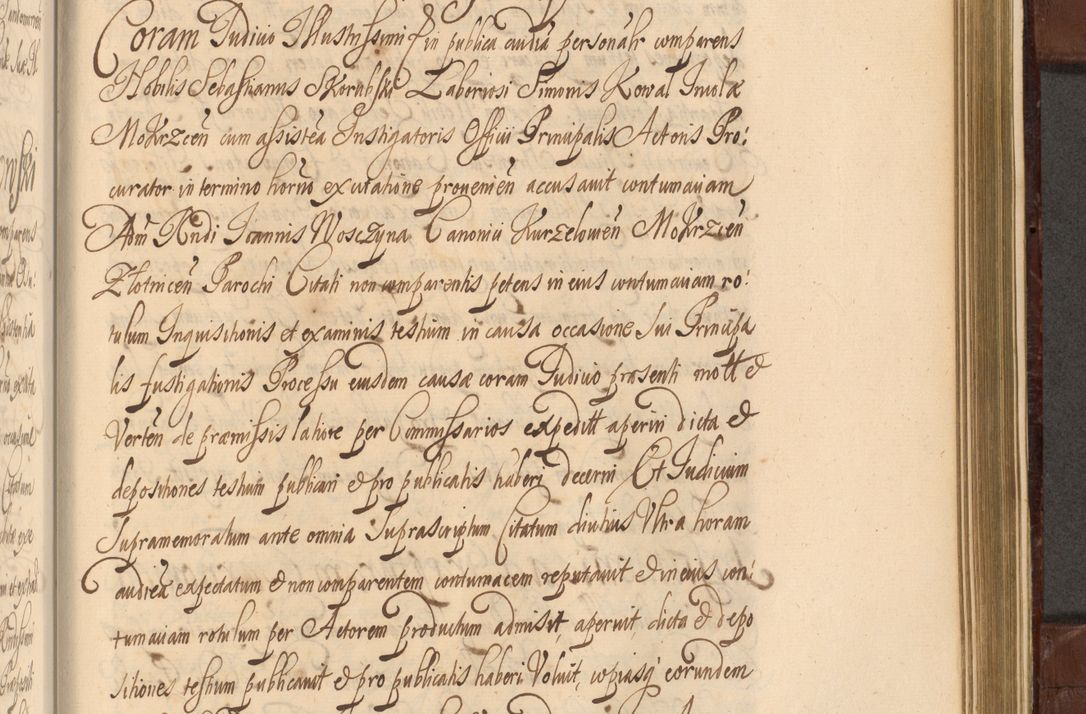 Coram Judicio Illustrissimi in publica audia personalr comparens
Nobilis Sebastianus Skorubski Laboriosi Simonis Kowal Incolæ
Mokrzceñ cum assisteã Instigatoris Officii Principalis Actoris Pro:
curator in termino horño ex citatione provenieñ accusavit contumaciam
Adm̃ Rñdi Joannis Wosczyna Canonici Kurzeloviẽn Mokrzceñ
Złotniceñ Parochi Citati non comparentis petens in eius contumaciam ro:
tulum Inquisitionis et examinis testium in causa occasione sui Principa
lis fustigationis Processu eiusdem causæ coram Judicio præsenti mott &
Verteñ de præmissis latiore per Commissarios expeditt aperiri dicta &
depositiones testium publicari & pro publicatis haberi decerni Et Judicium
Supramemoratum ante omnia Suprascriptum Citatum diutius Ultra horam
audieñ expectatum & non comparentem contumacem reputavit & in eius con:
tumaciam rotulum per Actorem productum admisit, aperuit, dicta & depo
sitiones testium publicavit & pro publicatis haberi Voluit, copiasq̃ eorundem